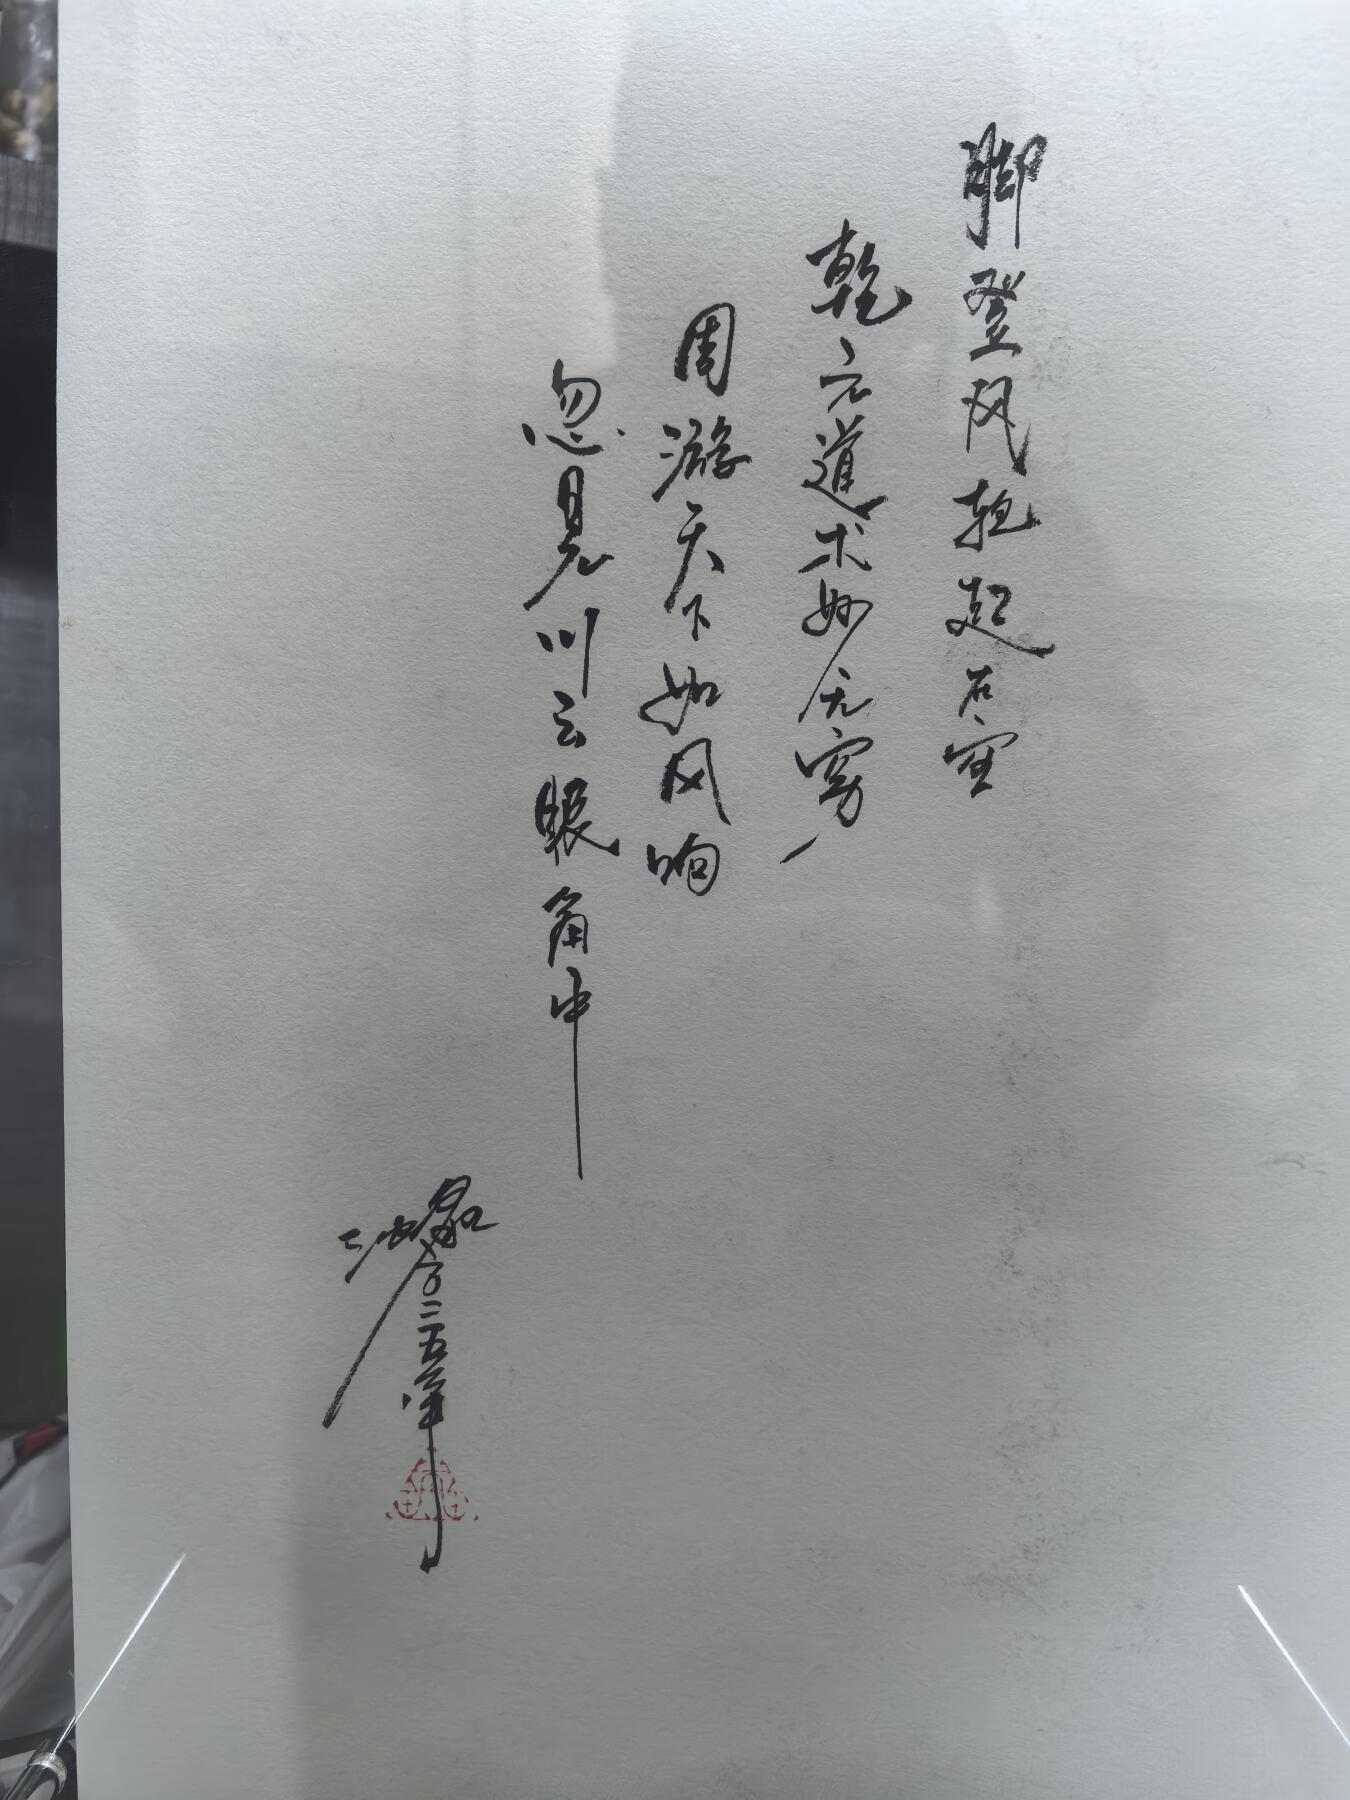 脚登风轮起左宜
乾元道术妙无穷
周游天下如风响
忽见川云眼角中
二〇二五年